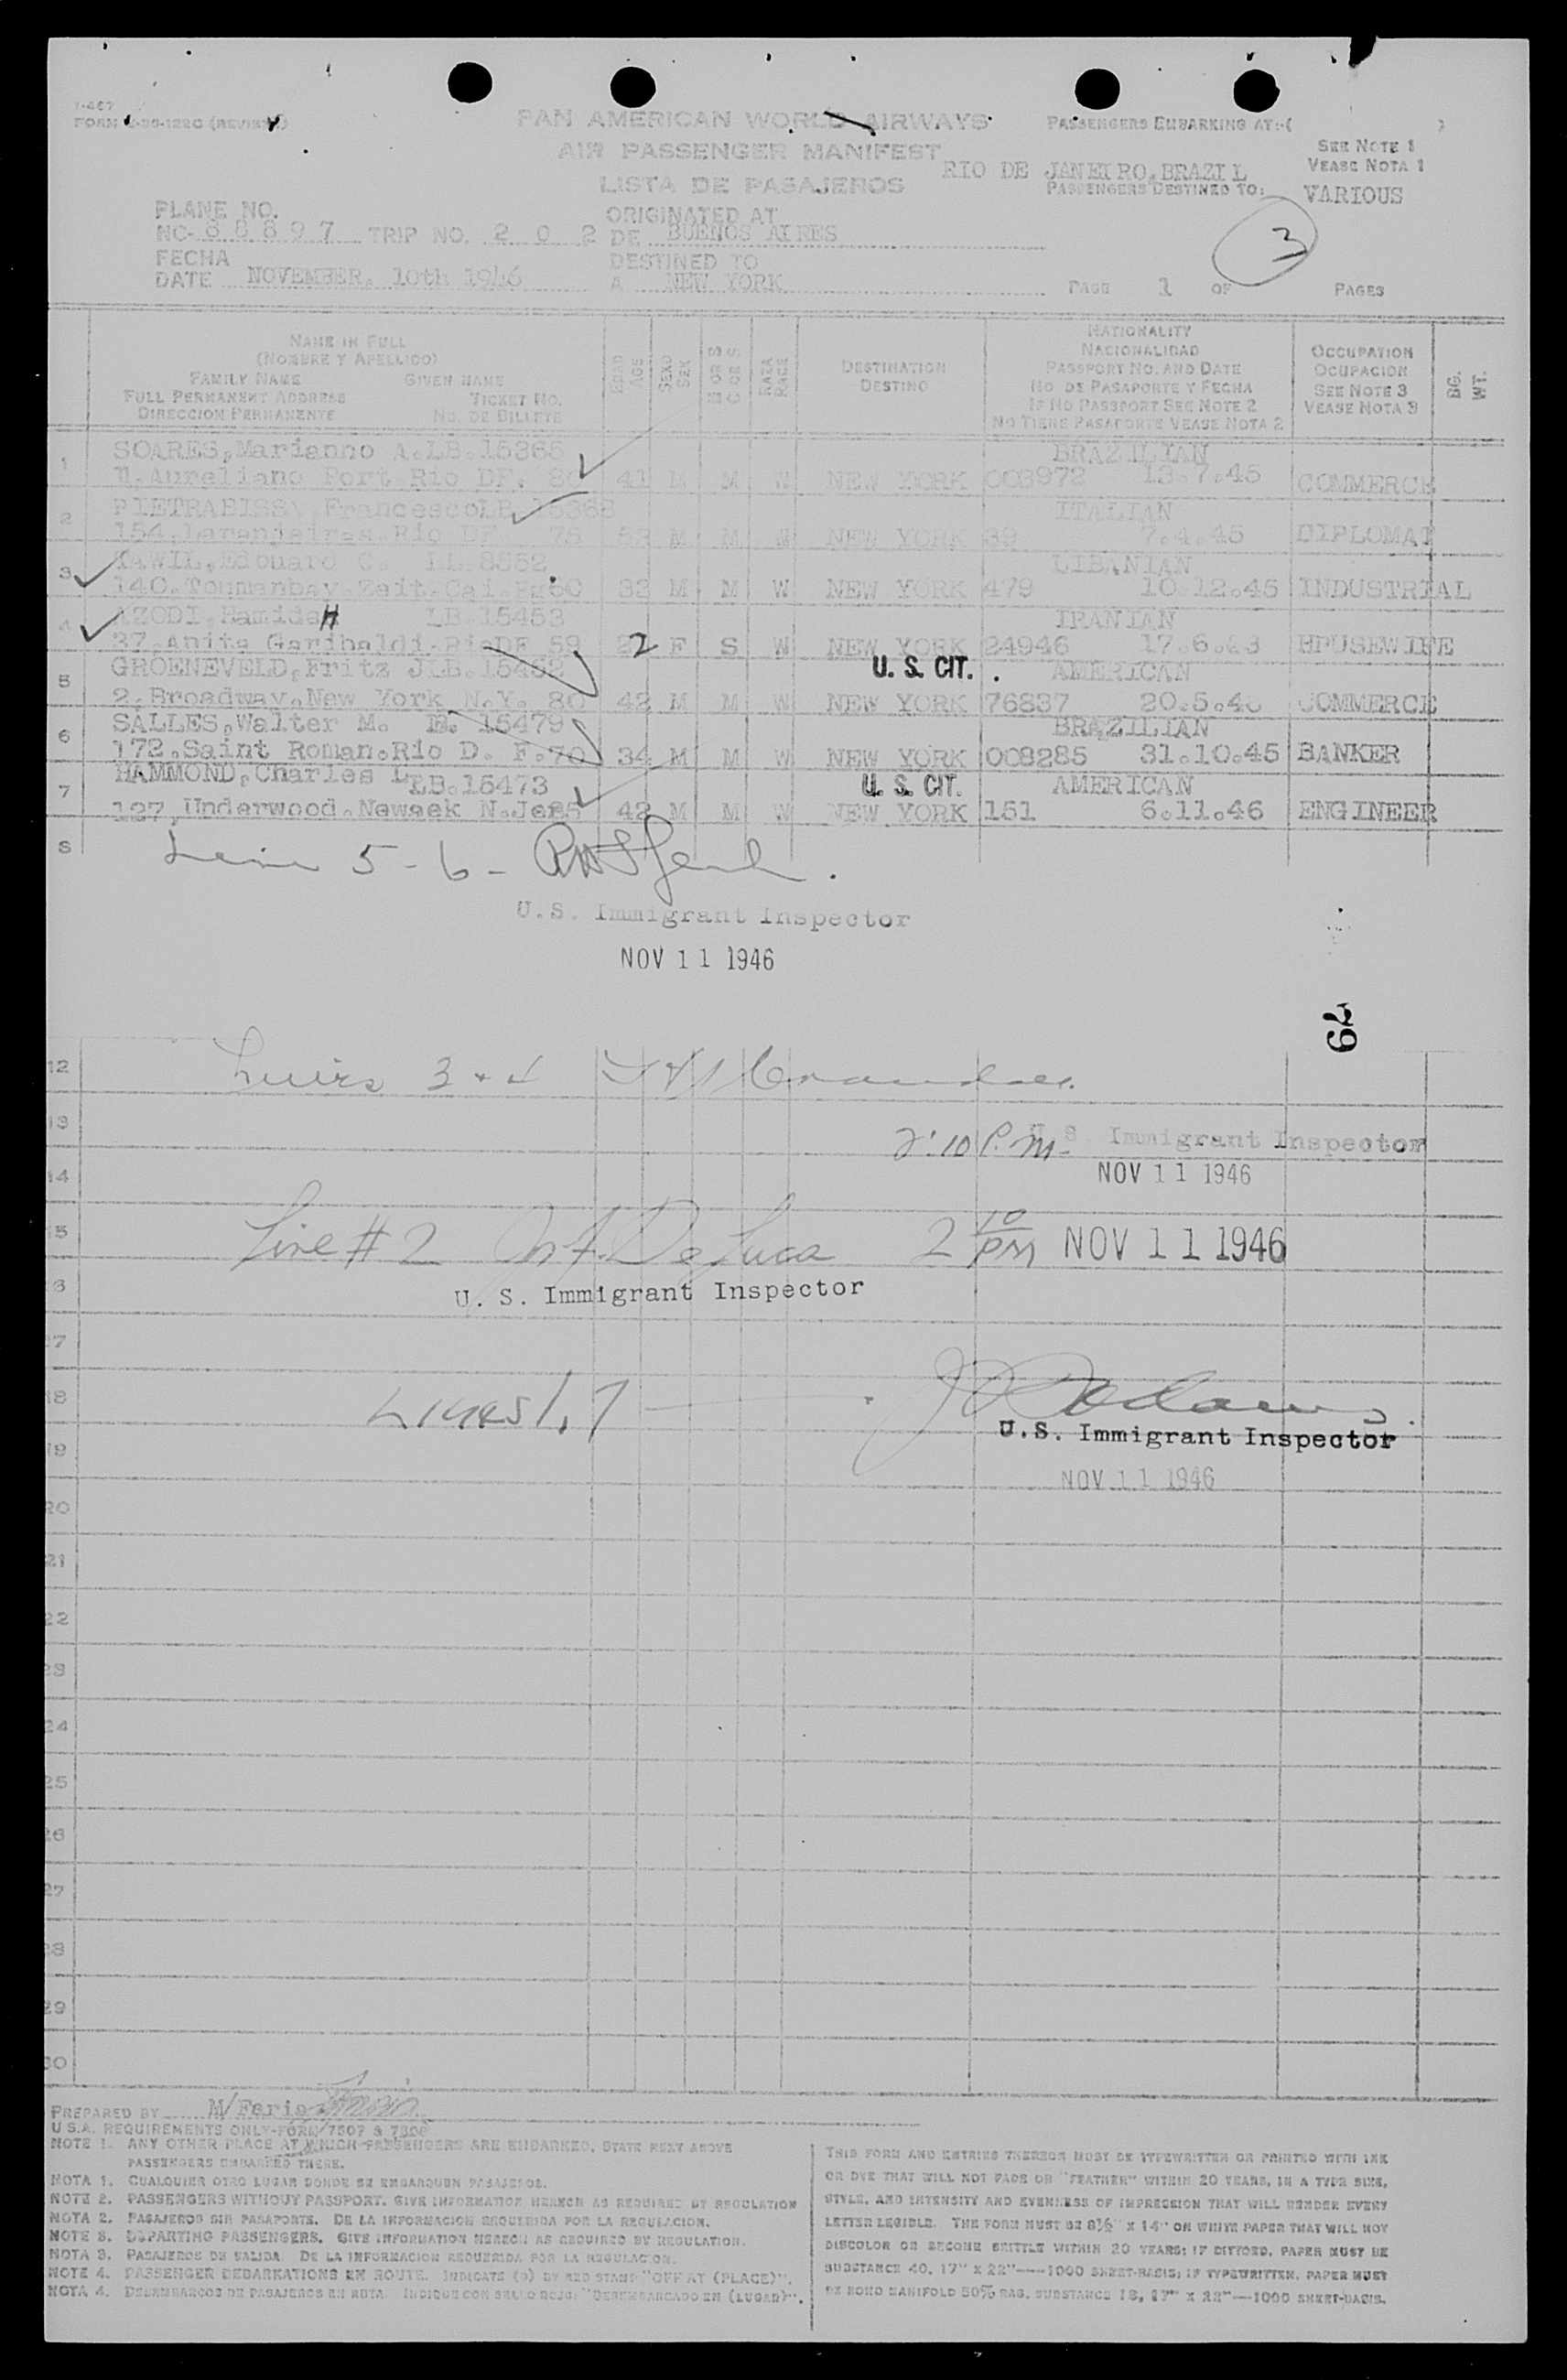 FORM (REVISED)
PAN AMERICAN WORLD AIRWAYS
PASSENGERS EMBARKING AT:-( )
SEE NOTE 1
AIR PASSENGER MANIFEST
VEASE NOTA 1
RIO DE JANEIRO, BRAZIL
LISTA DE PASAJEROS
PASSENGERS DESTINED TO:
VARIOUS
PLANE NO.
ORIGINATED AT
3
NC- 88897 TRIP NO. 2 0 2
DE BUENOS AIRES
FECHA
DESTINED TO
DATE NOVEMBER, 10th 1946
A NEW YORK
PAGE 1 OF PAGES
NAME IN FULL
(NOMBRE Y APELLIDO)
FAMILY NAME GIVEN NAME
FULL PERMANENT ADDRESS TICKET NO.
DIRECCION PERMANENTE NO. DE BILLETE
EDAD
AGE
SEXO
SEX
M OR S
C OR S
RAZA
RACE
DESTINATION
DESTINO
NATIONALITY
NACIONALIDAD
PASSPORT NO. AND DATE
NO DE PASAPORTE Y FECHA
IF NO PASSPORT SEE NOTE 2
NO TIENE PASAPORTE VEASE NOTA 2
OCCUPATION
OCUPACION
SEE NOTE 3
VEASE NOTA 3
BG.
WT.
1 SOARES, Marianno A. LB. 15365 BRAZILIAN
Aureliano Port Rio DF. 80 41 M M W NEW YORK 003972 13.7.45 COMMERCE
2 PIETRABISSA, Francesco LB. 15368 ITALIAN
154, Laranjeiras Rio DF 75 53 M M W NEW YORK 39 7.4.45 DIPLOMAT
3 TAWIL, Edouard C. LL. 8552 LIBANIAN
14C. Toumanbay. Zeit. Cai. 60 32 M M W NEW YORK 479 10.12.45 INDUSTRIAL
4 AZODI, HamidaH LB. 15453 IRANIAN
37, Anita Garibaldi. Rio DF 59 22 F S W NEW YORK 24946 17.6. HPUSEWIFE
5 GROENEVELD, Fritz J LB. 15462 U. S. CIT. AMERICAN
2. Broadway. New York N.Y. 80 42 M M W NEW YORK 76837 20.5. COMMERCE
6 SALLES, Walter M. LB. 15479 BRAZILIAN
172. Saint Roman. Rio D. F. 70 34 M M W NEW YORK 008285 31.10.45 BANKER
7 HAMMOND, Charles L LB. 15473 U. S. CIT. AMERICAN
127, Underwood. Newaek N. Jer 85 42 M M W NEW YORK 151 6.11.46 ENGINEER
8
Line 5-6-
U.S. Immigrant Inspector
NOV 11 1946
79
12 Lines 3 + 4
13
2:10 P.M. U.S. Immigrant Inspector
14 NOV 11 1946
15 Line # 2 De Luca 2 10 PM NOV 11 1946
16 U. S. Immigrant Inspector
17
18 LINES 1, 7
U.S. Immigrant Inspector
19
NOV 11 1946
20
21
22
23
24
25
26
27
28
29
30
PREPARED BY M/Faria
U.S.A. REQUIREMENTS ONLY-FORM 7507 & 7508
NOTE 1. ANY OTHER PLACE AT WHICH PASSENGERS ARE EMBARKED, STATE NEXT ABOVE
PASSENGERS EMBARKED THERE.
NOTA 1. CUALQUIER OTRO LUGAR DONDE SE EMBARQUEN PASAJEROS.
NOTE 2. PASSENGERS WITHOUT PASSPORT. GIVE INFORMATION HEREON AS REQUIRED BY REGULATION
NOTA 2. PASAJEROS SIN PASAPORTE. DE LA INFORMACION REQUERIDA POR LA REGULACION.
NOTE 3. DEPARTING PASSENGERS. GIVE INFORMATION HEREON AS REQUIRED BY REGULATION.
NOTA 3. PASAJEROS DE SALIDA DE LA INFORMACION REQUERIDA POR LA REGULACION.
NOTE 4. PASSENGER DEBARKATIONS EN ROUTE. INDICATE (D) BY RED STAMP "OFF AT (PLACE)".
NOTA 4. DESEMBARCOS DE PASAJEROS EN RUTA. INDIQUE CON SELLO ROJO: "DESEMBARCADO EN (LUGAR)".
THIS FORM AND ENTRIES THEREON MUST BE TYPEWRITTEN OR PRINTED WITH INK
OR DYE THAT WILL NOT FADE OR "FEATHER" WITHIN 20 YEARS, IN A TYPE SIZE,
STYLE, AND INTENSITY AND EVENNESS OF IMPRESSION THAT WILL RENDER EVERY
LETTER LEGIBLE. THE FORM MUST BE 8½" X 14" ON WHITE PAPER THAT WILL NOT
DISCOLOR OR BECOME BRITTLE WITHIN 20 YEARS; IF DITTOED, PAPER MUST BE
SUBSTANCE 40, 17" X 22"—1000 SHEET-BASIS; IF TYPEWRITTEN, PAPER MUST
BE BOND MANIFOLD 50% RAG, SUBSTANCE 18, 17" X 22"—1000 SHEET-BASIS.